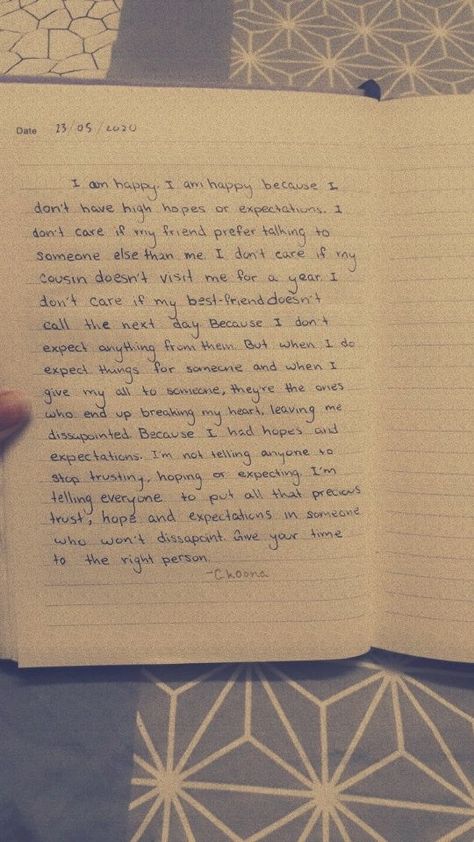 Date 23/05/2020
I am happy. I am happy because I
don't have high hopes or expectations. I
don't care if my friend prefer talking to
someone else than me. I don't care if my
cousin doesn't visit me for a year. I
don't care if my best-friend doesn't
call the next day. Because I don't
expect anything from them. But when I do
expect things for someone and when I
give my all to someone, they're the ones
who end up breaking my heart, leaving me
dissapointed. Because I had hopes and
expectations. I'm not telling anyone to
stop trusting, hoping or expecting. I'm
telling everyone to put all that precious
trust, hope and expectations in someone
who won't dissapoint. Give your time
to the right person.
-Choona